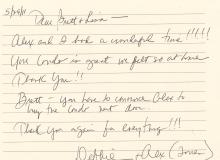 5/29/11
Dear Brett & Lisa —
Alex and I had a wonderful time!!!!!
Your Condo is great we felt so at home
Thank You!!
Brett - you have to convince Alex to
buy the condo next door.
Thank you again for everything!!!
Debbie & Alex (Jones)